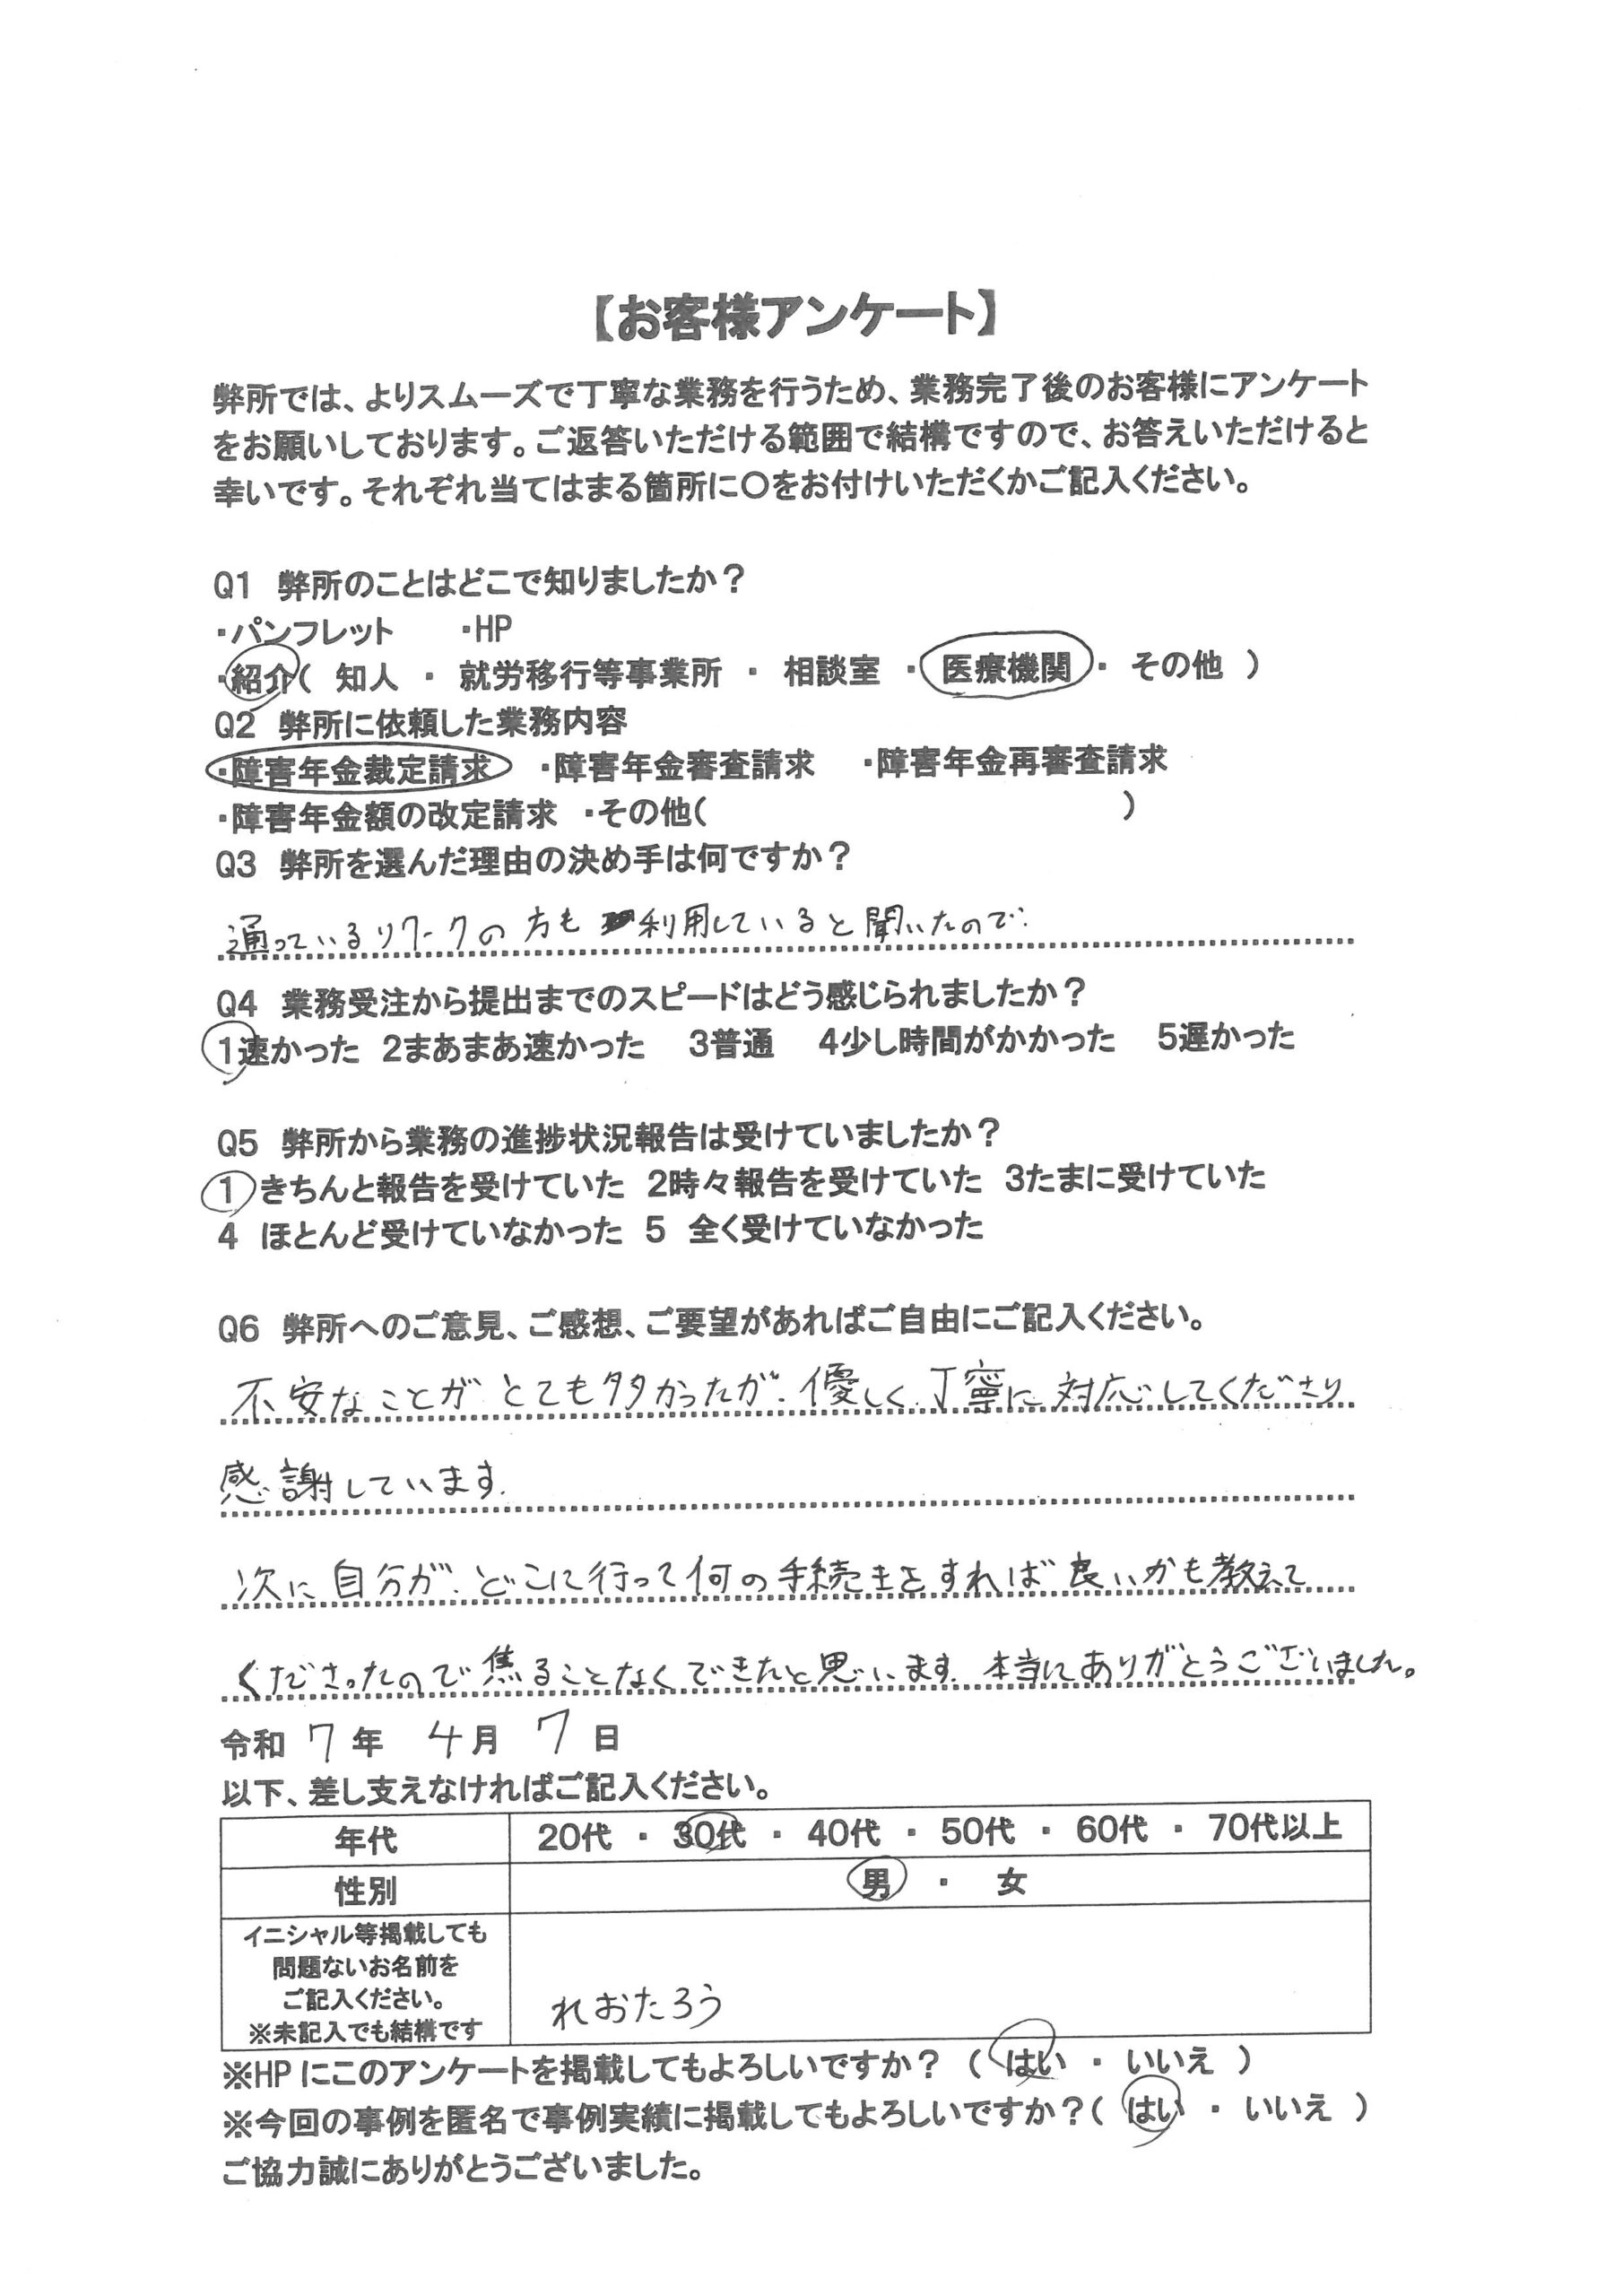 【お客様アンケート】
弊所では、よりスムーズで丁寧な業務を行うため、業務完了後のお客様にアンケート
をお願いしております。ご返答いただける範囲で結構ですので、お答えいただけると
幸いです。それぞれ当てはまる箇所に〇をお付けいただくかご記入ください。
Q1 弊所のことはどこで知りましたか？
・パンフレット ・HP
・紹介( 知人 ・ 就労移行等事業所 ・ 相談室 ・ 医療機関 ・ その他 )
Q2 弊所に依頼した業務内容
・障害年金裁定請求 ・障害年金審査請求 ・障害年金再審査請求
・障害年金額の改定請求 ・その他( )
Q3 弊所を選んだ理由の決め手は何ですか？
通っているリワークの方も利用していると聞いたので.
Q4 業務受注から提出までのスピードはどう感じられましたか？
1速かった 2まあまあ速かった 3普通 4少し時間がかかった 5遅かった
Q5 弊所から業務の進捗状況報告は受けていましたか？
1 きちんと報告を受けていた 2時々報告を受けていた 3たまに受けていた
4 ほとんど受けていなかった 5 全く受けていなかった
Q6 弊所へのご意見、ご感想、ご要望があればご自由にご記入ください。
不安なことがとても多かったが、優しく丁寧に対応してくださり
感謝しています.
次に自分が、どこに行って何の手続きをすれば良いかも教えて
くださったので焦ることなくできたと思います. 本当にありがとうございました。
令和 7 年 4 月 7 日
以下、差し支えなければご記入ください。
年代 20代 ・ 30代 ・ 40代 ・ 50代 ・ 60代 ・ 70代以上
性別 男 ・ 女
イニシャル等掲載しても
問題ないお名前を
ご記入ください。
※未記入でも結構です
れおたろう
※HPにこのアンケートを掲載してもよろしいですか？ ( はい ・ いいえ )
※今回の事例を匿名で事例実績に掲載してもよろしいですか？( はい ・ いいえ )
ご協力誠にありがとうございました。